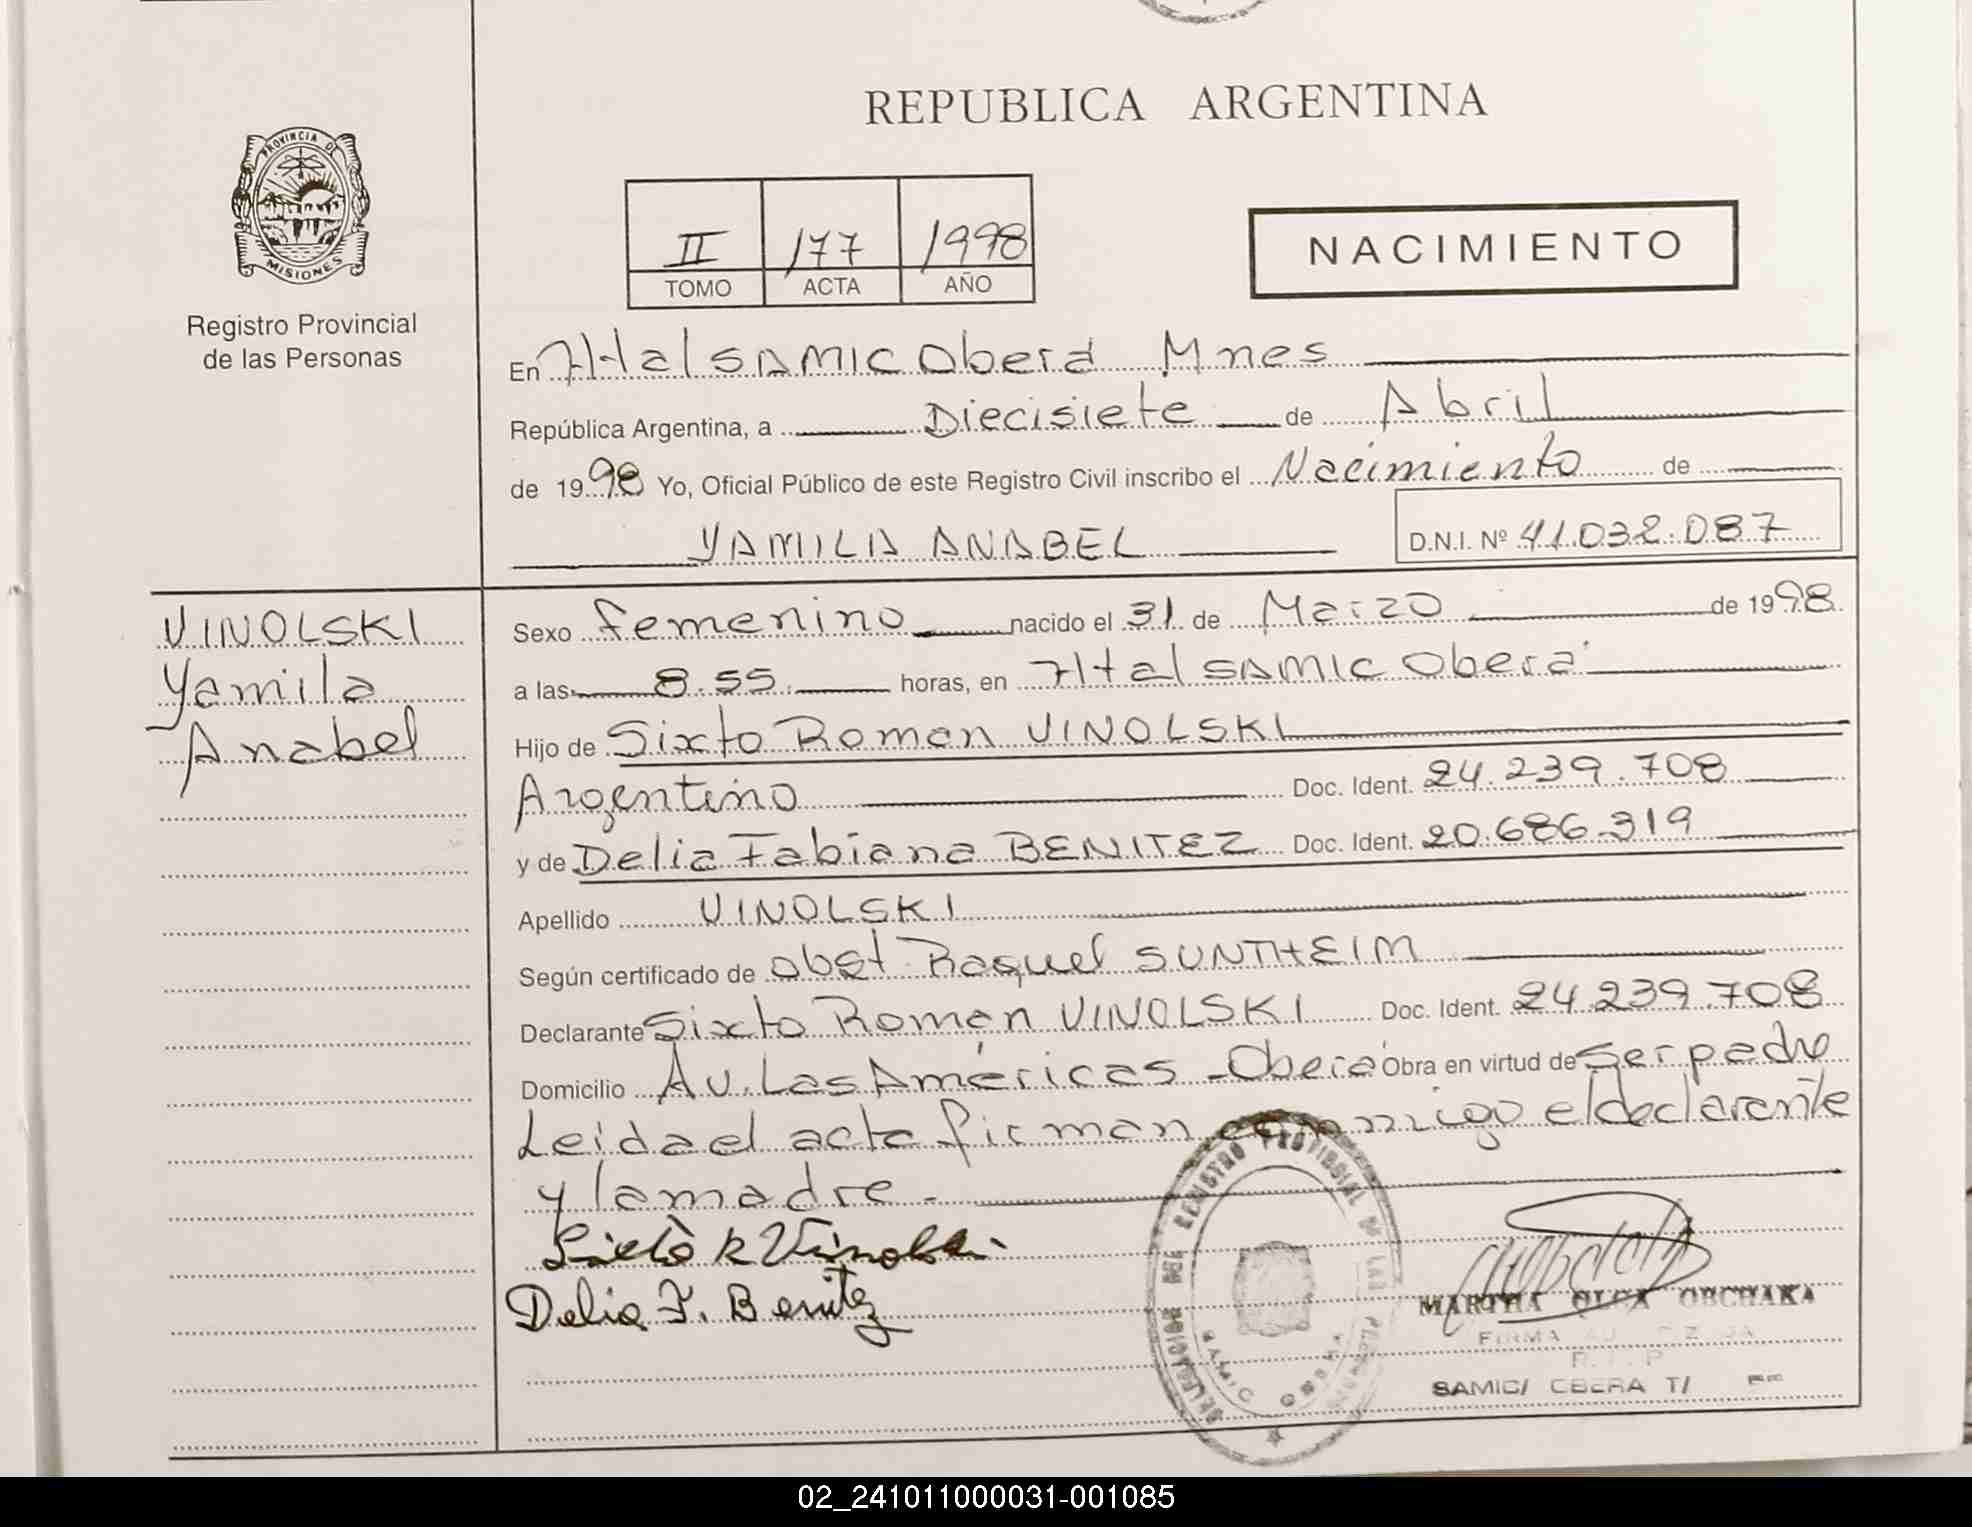 REPUBLICA ARGENTINA
PROVINCIA DE
MISIONES
Registro Provincial
de las Personas
II 177 1998
TOMO ACTA AÑO
NACIMIENTO
En Htal SAMIC Oberá Mnes
República Argentina, a Diecisiete de Abril
de 1998 Yo, Oficial Público de este Registro Civil inscribo el Nacimiento de
YAMILA ANABEL D.N.I. Nº 41.032.087
VINOLSKI
Yamila
Anabel
Sexo femenino nacido el 31 de Marzo de 1998
a las 8.55 horas, en Htal SAMIC Oberá
Hijo de Sixto Roman VINOLSKI
Argentino Doc. Ident. 24.239.708
y de Delia Fabiana BENITEZ Doc. Ident. 20.686.319
Apellido VINOLSKI
Según certificado de obst Raquel SUNTHEIM
Declarante Sixto Roman VINOLSKI Doc. Ident. 24.239.708
Domicilio Av. Las Américas - Oberá Obra en virtud de ser padre
Leida el acta firman conmigo el declarante
y la madre.-
Sixto R Vinolski
Delia F. Benitez
DELEGACION DEL REGISTRO PROVINCIAL DE LAS PERSONAS
SAMIC OBERA
MARTHA OLGA OBCHAKA
FIRMA
SAMIC/ OBERA T/
02_241011000031-001085